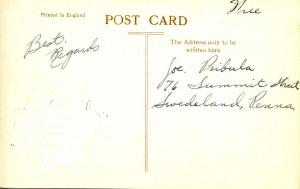 Free
Printed in England
POST CARD
Best
Regards
The Address only to be
written here
Joe. Pribula
76 Summit Street
Swedeland, Penna.